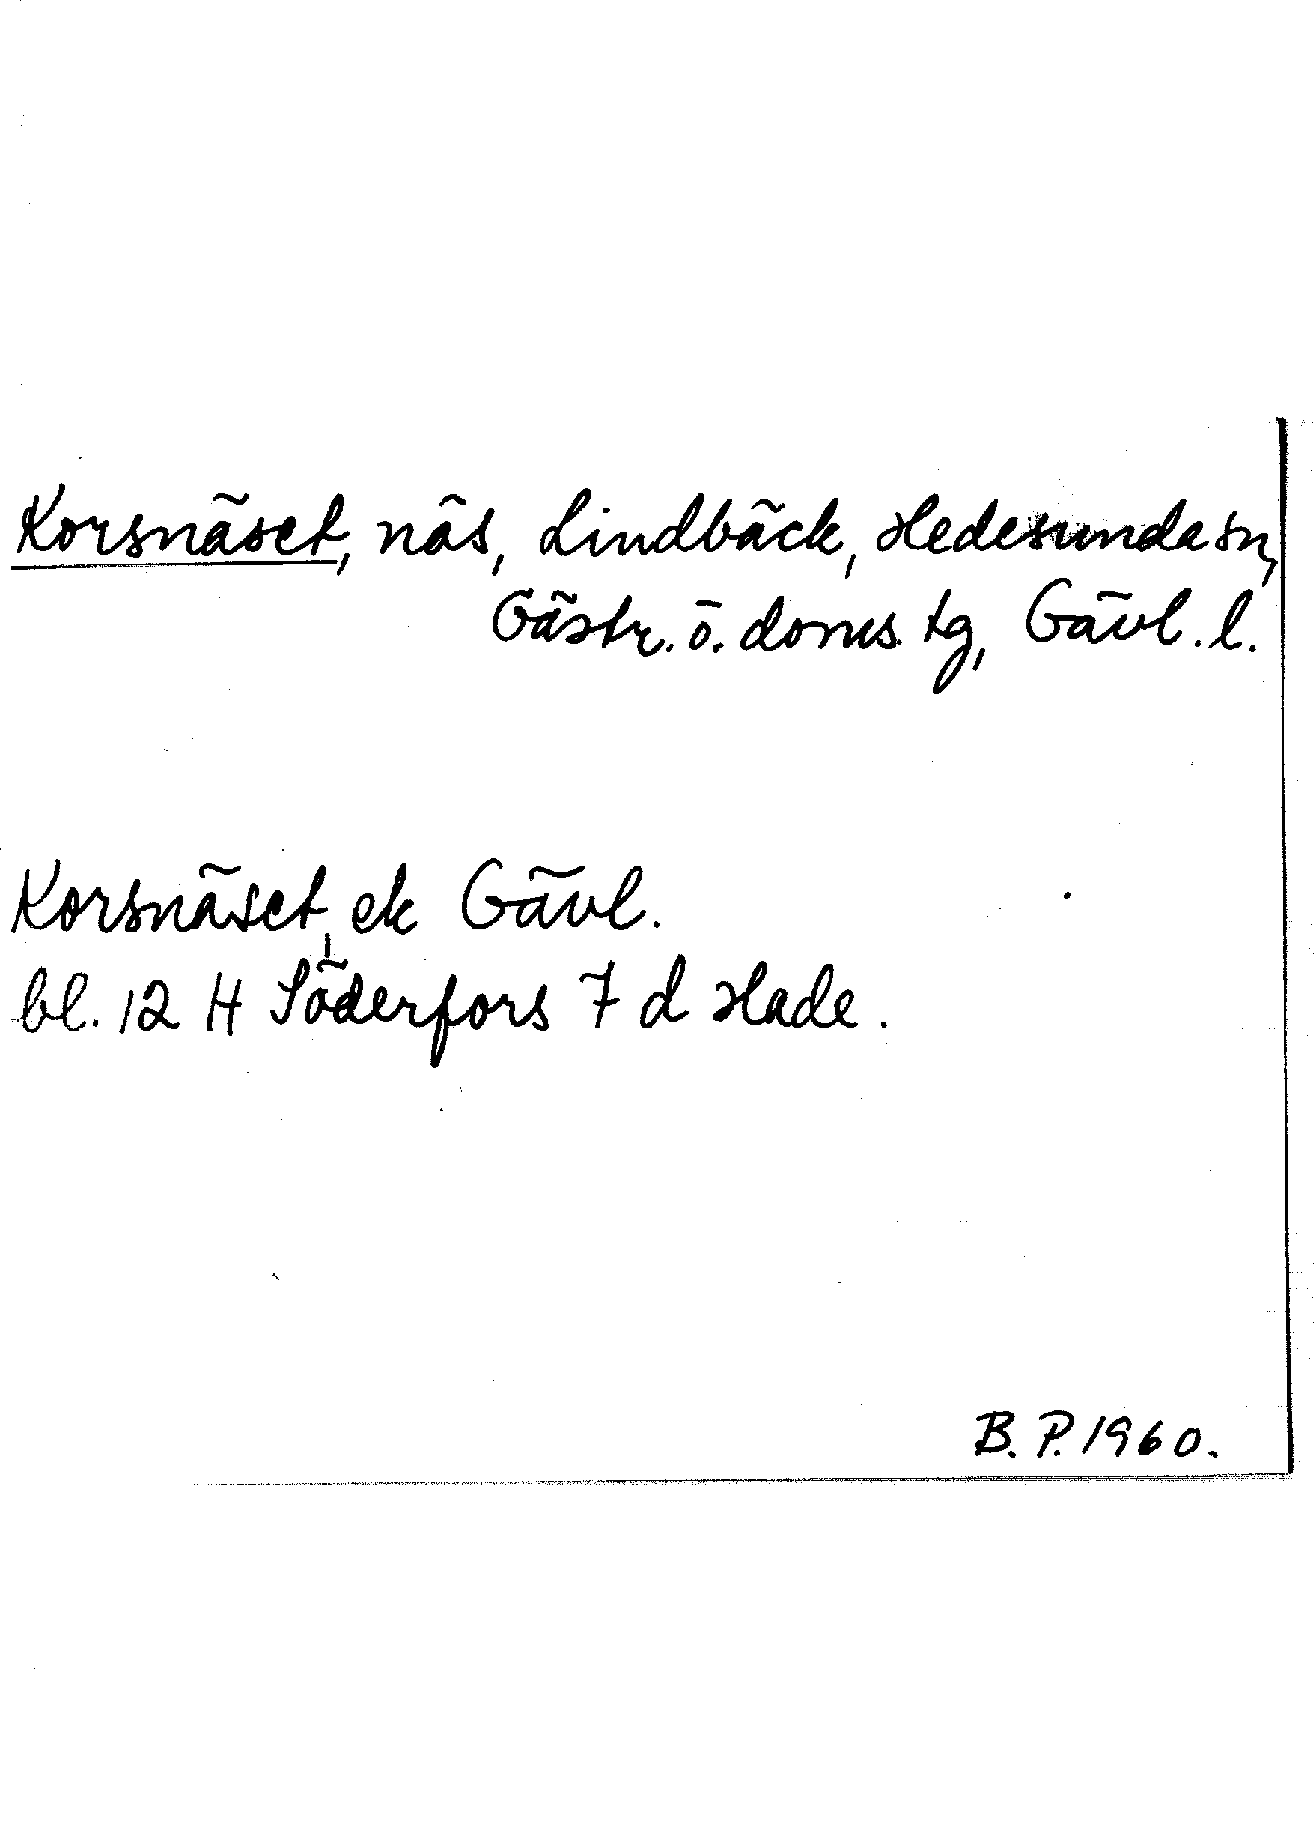 Korsnäset, näs, Lindbäck, Hedesunda sn,
Gästr. ö. doms. tg, Gävl. l.
Korsnäset, ek Gävl.
bl. 12 H Söderfors 7 d Hade.
B. P. 1960.